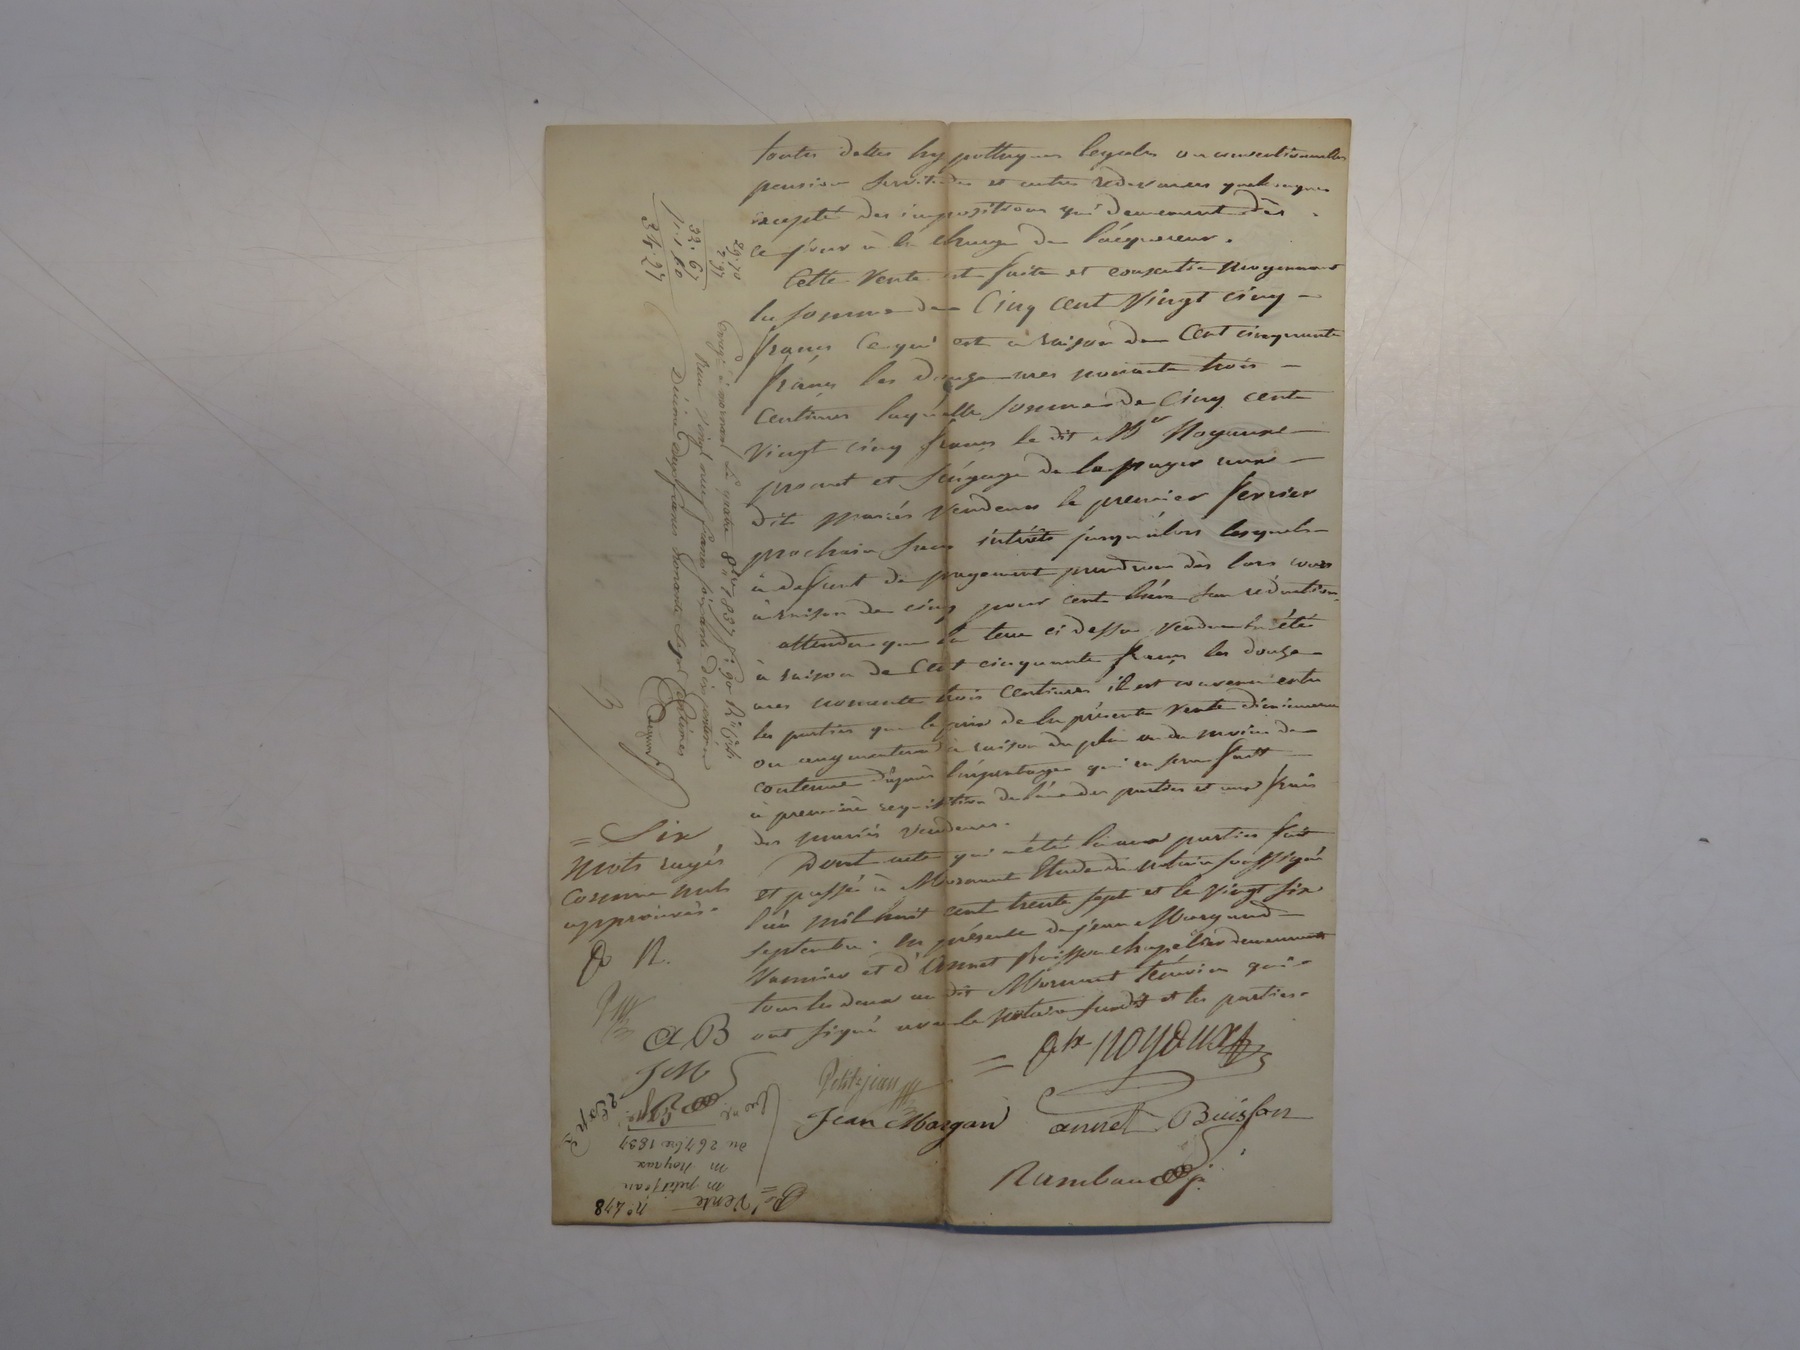 toutes dettes hypotheques legales ou conventionnelles
pension servitudes et autres redevances quelconques
excepté des impositions qui demeurent dès
ce jour à la charge de l'acquereur.
Cette Vente est faite et consentie moyennant
la somme de Cinq cent Vingt cinq
francs Ce qui est à raison de Cent cinquante
francs les douze ares nonante trois
Centimes laquelle somme de Cinq cent
Vingt cinq francs le dit Mr Noyaux
promet et s'engage de la payer aux
dit mariés Vendeurs le premier fevrier
prochain sans intérêts jusqu'alors lesquels
à defaut de payement prendront dès lors cours
à raison de cinq pour cent l'an sans réduction
attendu que la terre ci dessus Vendue l'a été
à raison de Cent cinquante francs les douze
ares nonante trois centiares il est convenu entre
les parties que le prix de la présente Vente diminuera
ou augmentera à raison du plus ou du moins de
contenue d'après l'arpentage qui en sera fait
à première requisition de l'une des parties et aux frais
des mariés Vendeurs.
Dont acte qui a été lu aux parties fait
et passé à Mornant Etude du notaire soussigné
l'an mil huit cent trente sept et le Vingt six
Septembre. En présence de Jean Margand
Vannier et d'Annet Buisson chapelier demeurants
tous les deux au dit Mornant témoins qui
ont signé avec le notaire susdit et les parties.
= Six
mots rayés
comme nuls
approuvés.
N.
A B
J M
Noyaux
Petitjean
Jean Margand
annet Buisson
Rambaud
29.70
2.97
32.67
1.60
34.27
Enregé à mornant Le quatre 8bre 1837 fo 90 Ro
Reçu Vingt neuf francs soixante dix centimes
Décime Deux francs nonante Sept Centimes
no 478
Vente
m petitjean
m Noyaux
du 26 7bre 1837